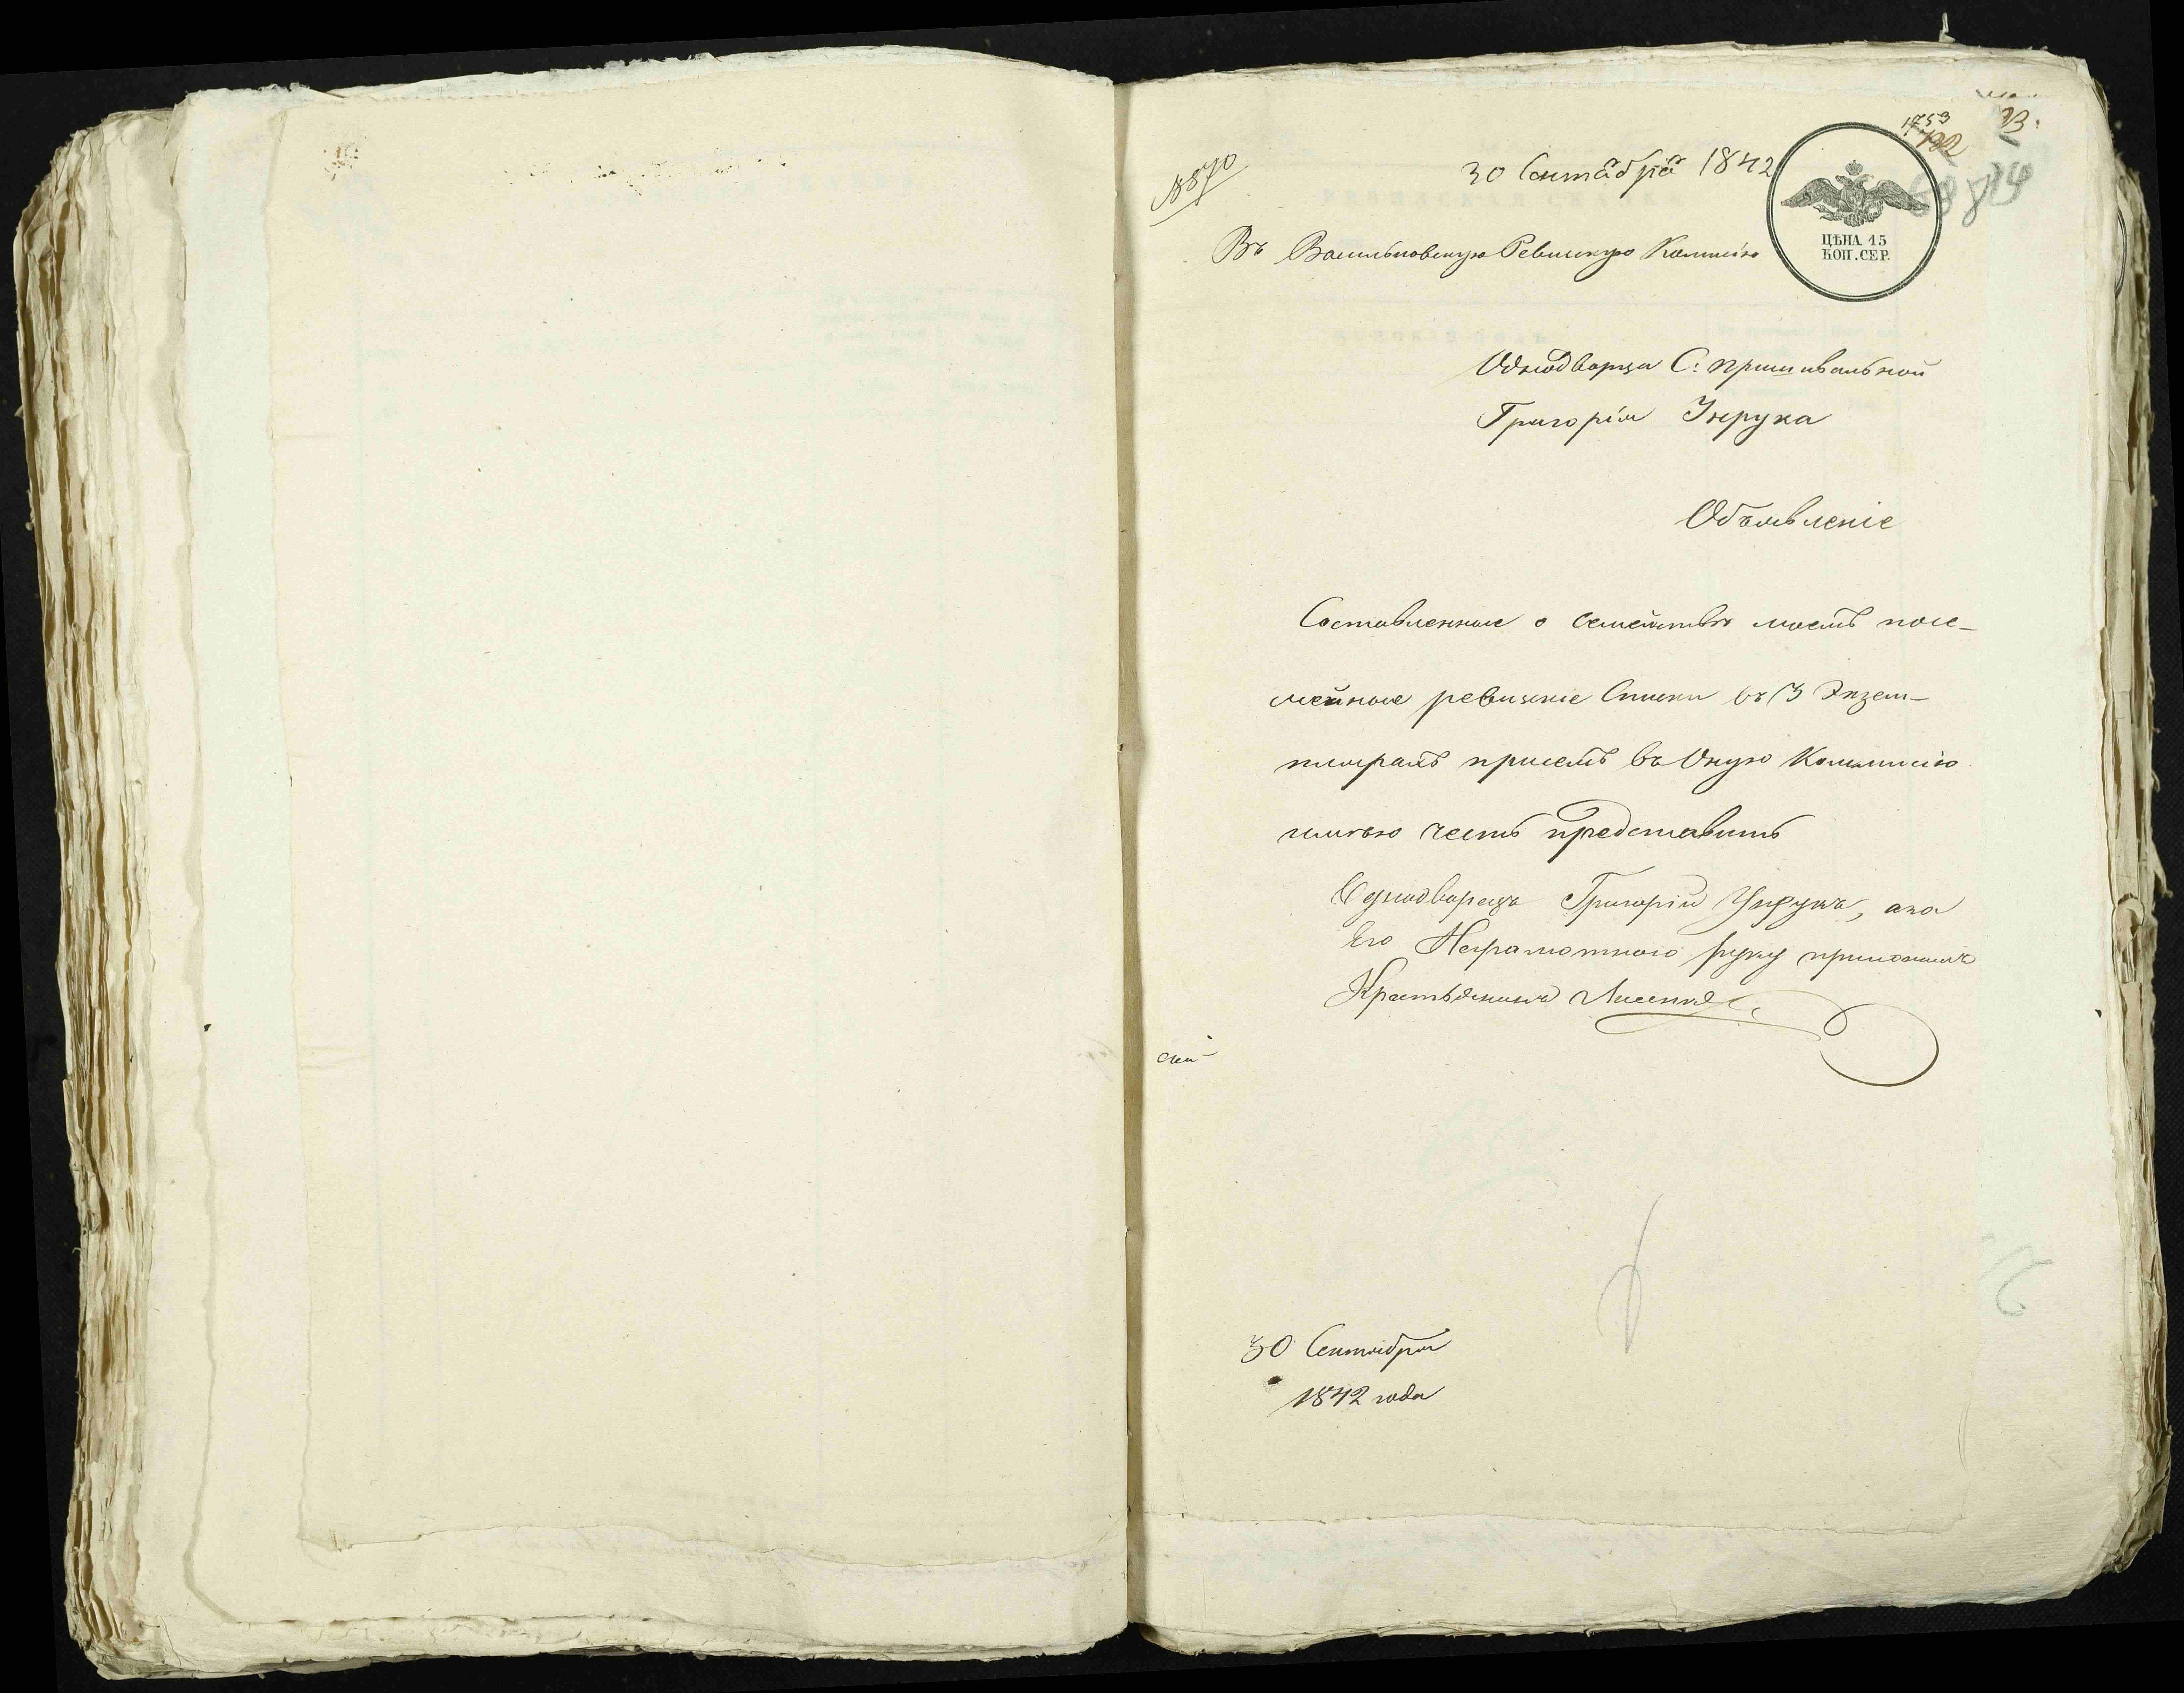 1753
132
23.
8870
30 Сентября 1842
ЦѢНА 15
КОП. СЕР.
Въ Васильковскую Ревискую Комисію
Однодворца С: Пришивальной
Григорія Унрука
Объявленіе
Составленные о семействѣ моемъ посе-
мейные ревизскіе Списки въ 3 Экзем-
плярахъ присемъ въ Оную Коммисію
имѣю честь представить
Однодворецъ Григорій Унрукъ, ана
Его Неграмотного руку приложилъ
Крестьянинъ
30 Сентября
1842 года